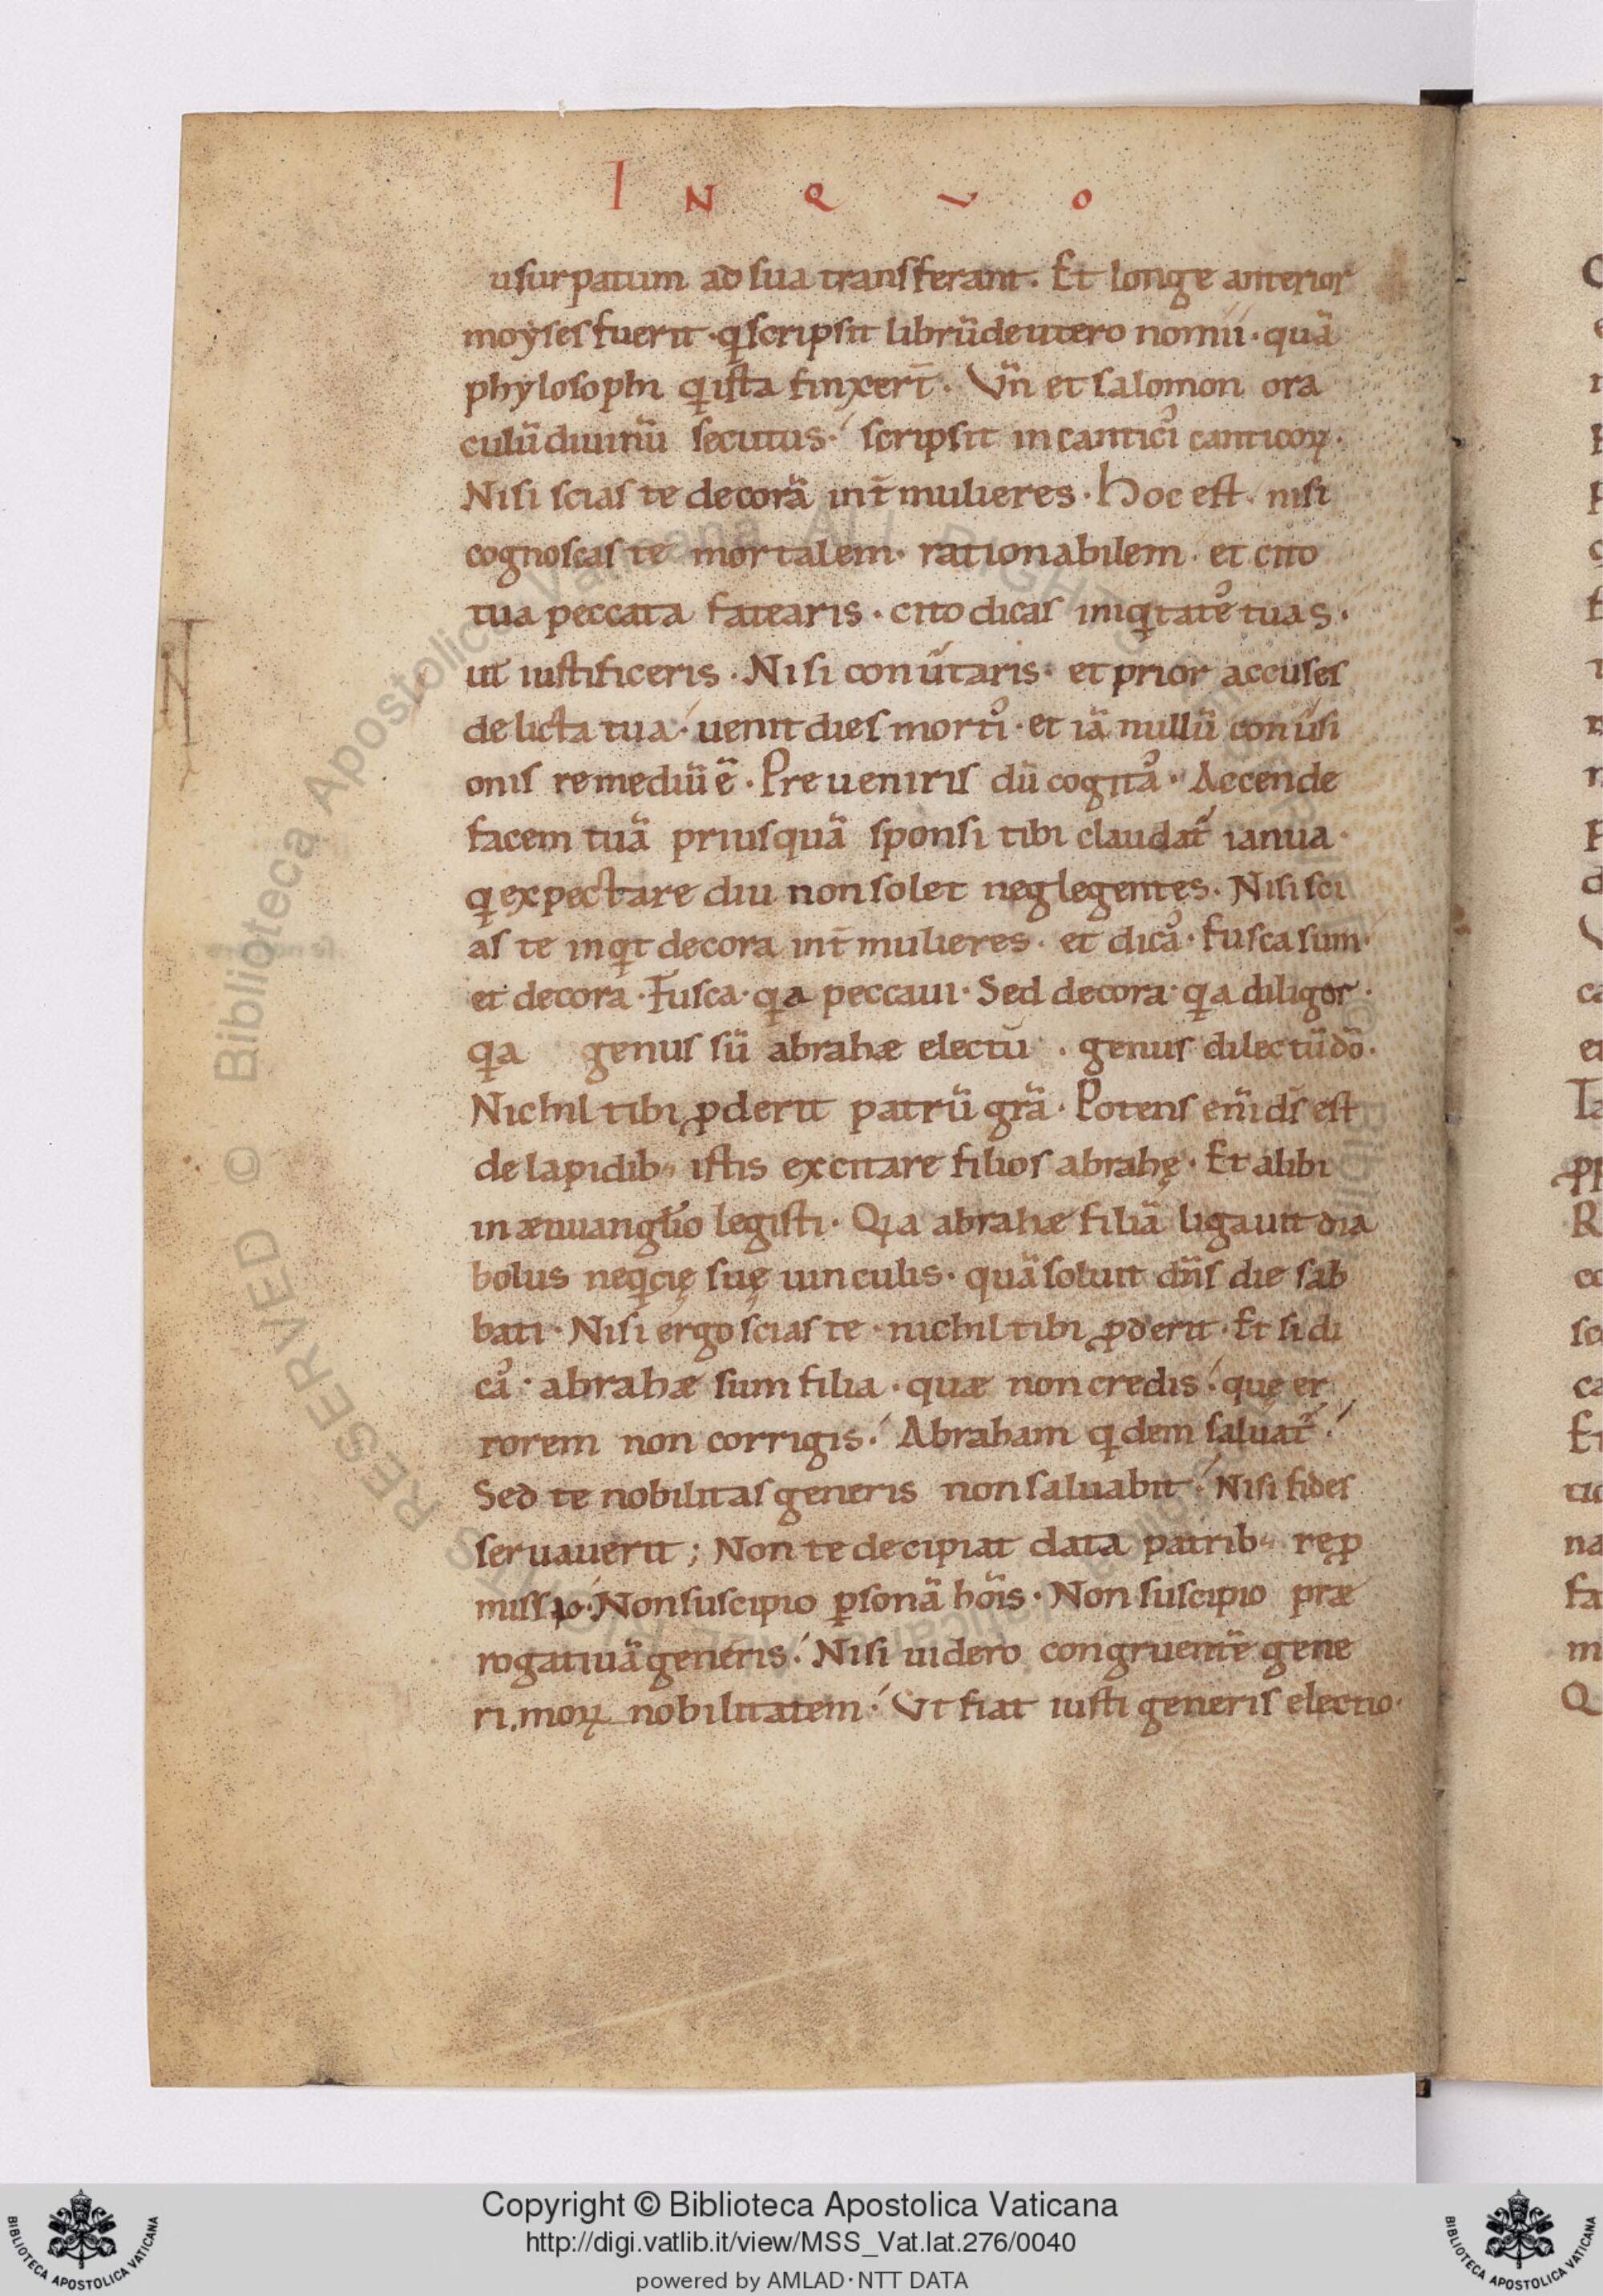 I N Q V O
usurpatum ad sua transferant. Et longe anterior
moyses fuerit · q̇ scripsit librū deutero nomii · quā
phylosophi q̇ ista finxer̄t. Vn̄ et salomon ora
culū diuinū secutus · scripsit in cantici᾽ canticoꝝ.
Nisi scias te decorā int̄ mulieres. Hoc est. nisi
cognoscas te mortalem · rationabilem · et cito
tua peccata fatearis · cito dicas iniq̇tate᾽ tuas.
ut iustificeris. Nisi conūtaris · et prior accuses
delicta tua · uenit dies morti᾽ · et iā nullū conūsi
onis remediū ē. Preueniris dū cogita᾽ · Accende
facem tuā priusquā sponsi tibi claudat᷑ ianua ·
q̇ expectare diu non solet neglegentes. Nisi sci
as te inq̇t decora int̄ mulieres · et dica᾽ · fusca sum ·
et decora · Fusca · q̇a peccaui · Sed decora · q̇a diligor ·
q̇a genus sū abrahæ electū · genus dilectū dō.
Nichil tibi ꝓderit patrū grā. Potens eni ds̄ est
de lapidib; istis excitare filios abrahę · Et alibi
in æuuanglio legisti. Qia abrahæ filiā ligauit dia
bolus neq̇cię suę uinculis · quā soluit dn̄s die sab
bati · Nisi ergo scias te · nichil tibi ꝓderit · Et si di
ca᾽ · abrahæ sum filia · quæ non credis · quę er
rorem non corrigis · Abraham q̇dem saluat᷑ ·
Sed te nobilitas generis non saluabit · Nisi fides
seruauerit ; Non te decipiat data patrib; reꝓ
missio · Non suscipio ꝑsonā hōis · Non suscipio præ
rogatiuā generis · Nisi uidero congruentē gene
ri. moꝝ nobilitatem · Vt fiat iusti generis electio ·
Copyright © Biblioteca Apostolica Vaticana
http://digi.vatlib.it/view/MSS_Vat.lat.276/0040
powered by AMLAD·NTT DATA
BIBLIOTECA APOSTOLICA VATICANA
BIBLIOTECA APOSTOLICA VATICANA